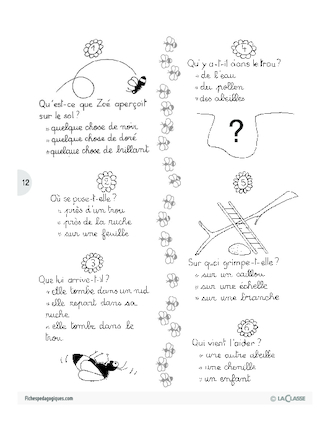 1
Qu'est-ce que Zoé aperçoit
sur le sol ?
quelque chose de noir
quelque chose de doré
quelque chose de brillant
12
2
Où se pose-t-elle ?
près d'un trou
près de la ruche
sur une feuille
3
Que lui arrive-t-il ?
elle tombe dans un nid
elle repart dans sa
ruche
elle tombe dans le
trou.
4
Qu'y a-t-il dans le trou ?
de l'eau
du pollen
des abeilles
?
5
Sur quoi grimpe-t-elle ?
sur un caillou
sur une échelle
sur une branche
6
Qui vient l'aider ?
une autre abeille
une chenille
un enfant
Fichespedagogiques.com
© LA CLASSE